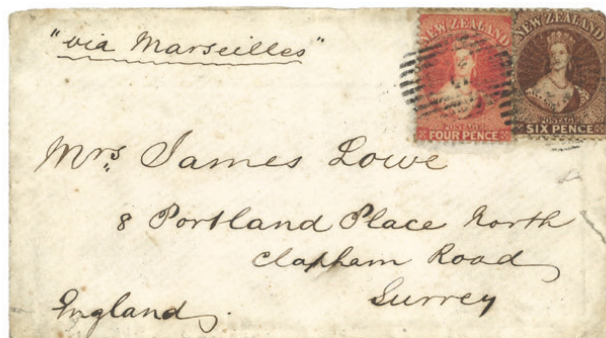 "via Marseilles"
NEW ZEALAND
POSTAGE
FOUR PENCE
NEW ZEALAND
POSTAGE
SIX PENCE
Mrs James Lowe
8 Portland Place North
Clapham Road
Surrey
England.